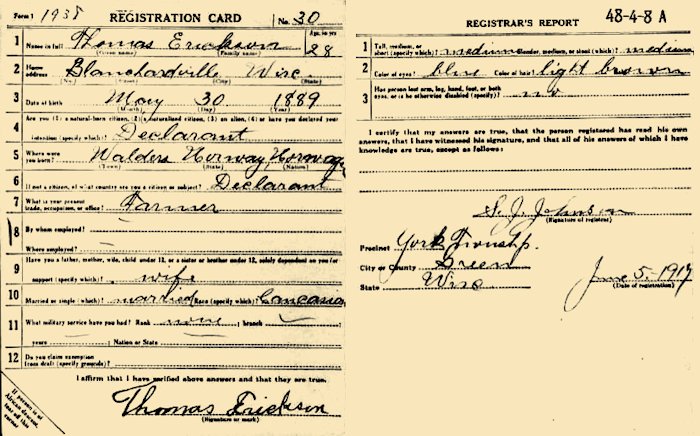 Form 1 1938 REGISTRATION CARD No. 30
1 Name in full Thomas Erickson Age, in yrs. 28
(Given name) (Family name)
2 Home address Blanchardville Wisc.
(No.) (Street) (City) (State)
3 Date of birth May 30 1889
(Month) (Day) (Year)
4 Are you (1) a natural-born citizen, (2) a naturalized citizen, (3) an alien, (4) or have you declared your
intention (specify which)? Declarant
5 Where were you born? Walders Norway, Norway
(Town) (State) (Nation)
6 If not a citizen, of what country are you a citizen or subject? Declarant
7 What is your present trade, occupation, or office? Farmer
8 By whom employed?
Where employed?
9 Have you a father, mother, wife, child under 12, or a sister or brother under 12, solely dependent on you for
support (specify which)? wife
10 Married or single (which)? married Race (specify which)? Caucasian
11 What military service have you had? Rank none ; branch
years ; Nation or State
12 Do you claim exemption from draft (specify grounds)?
I affirm that I have verified above answers and that they are true.
Thomas Erickson
(Signature or mark)
If person is of
African descent,
tear off this
corner
REGISTRAR'S REPORT 48-4-8 A
1 Tall, medium, or short (specify which)? medium Slender, medium, or stout (which)? medium
2 Color of eyes? blue Color of hair? light brown
3 Has person lost arm, leg, hand, foot, or both
eyes, or is he otherwise disabled (specify)? no
I certify that my answers are true, that the person registered has read his own
answers, that I have witnessed his signature, and that all of his answers of which I have
knowledge are true, except as follows:
S. J. Johnson
(Signature of registrar)
Precinct York Township.
City or County Green
State Wisc
June 5-1917
(Date of registration)